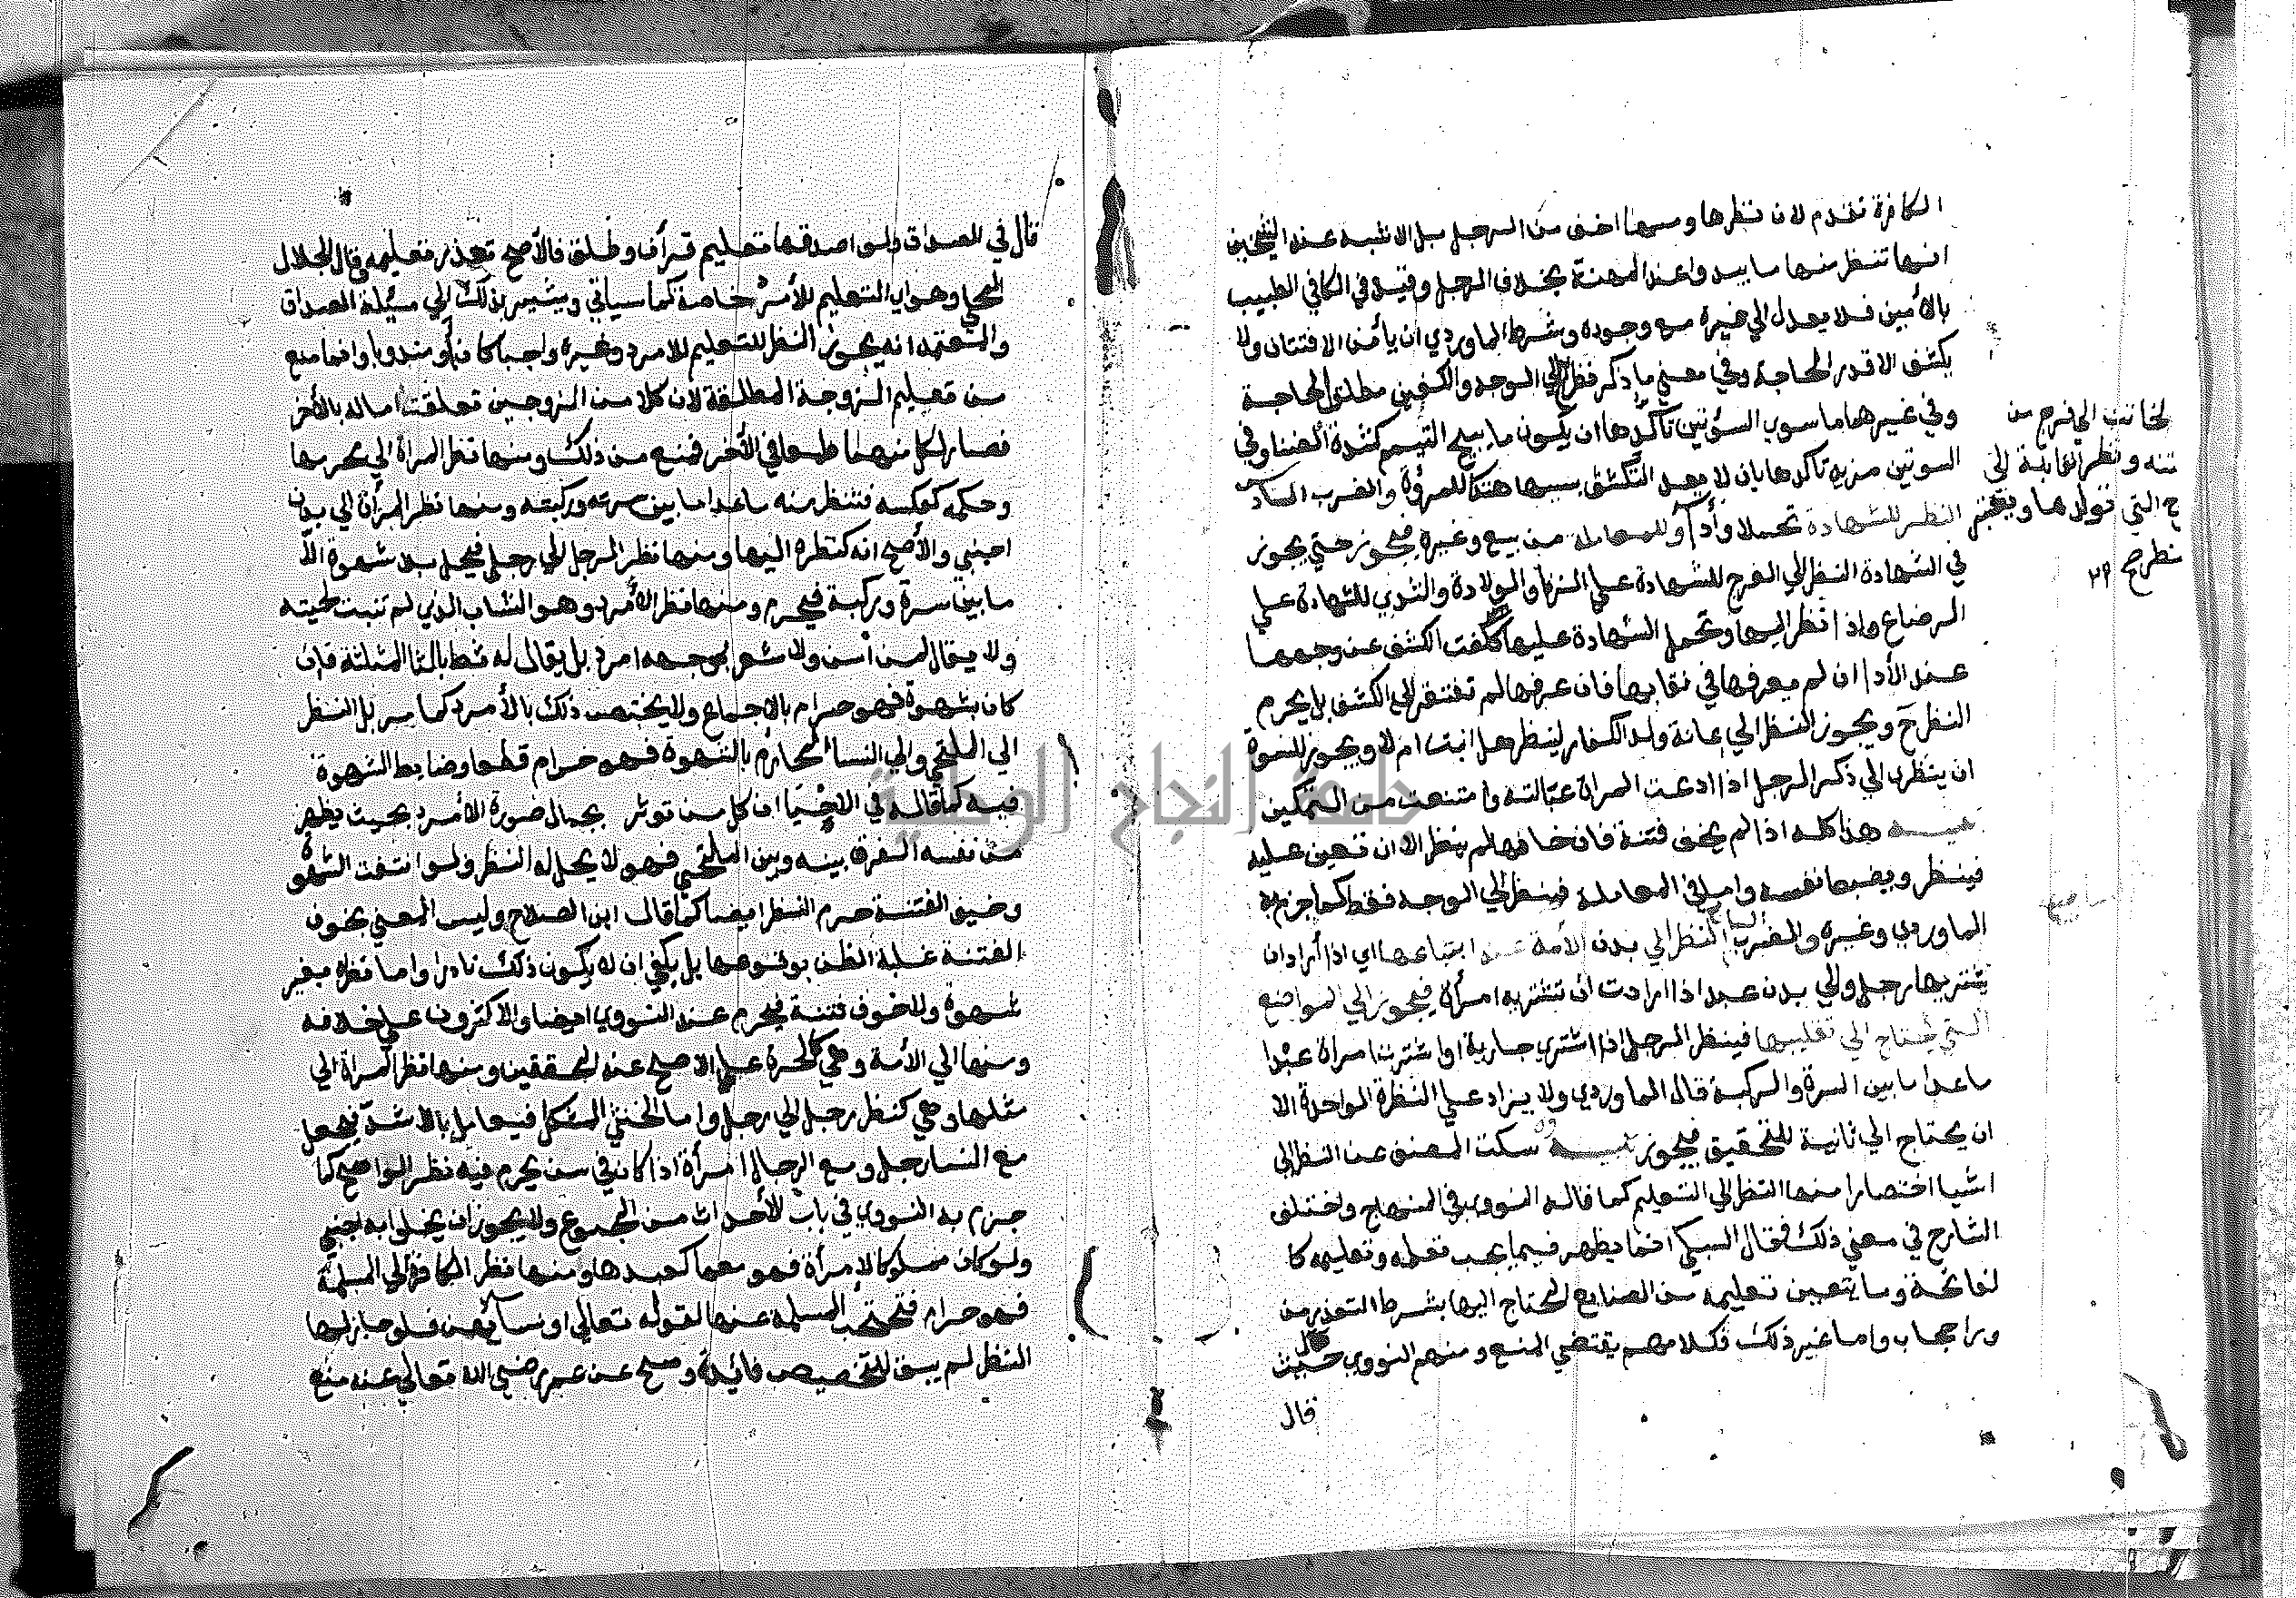 الكافرة تقدم لان نظرها ومسها اخف من الرجل بل الاشبه عند الشيخين
انها تنظر منها ما يبدوا عند المهنة بخلاف الرجل وقيد في الكافي الطبيب
بالأمين فلا يعدل الي غيره مع وجوده وشرط الماوردي ان يأمن الافتتان ولا
يكشف الا قدر الحاجة وفي معني ما ذكر نظر الي الوجه والكفين مطلق الحاجة
وفي غيرهما ما سوي السوتين تأكدها ان يكون ما يبيح التيمم كشدة الضنا وفي
السوتين مزيد تاكدها بان لا يعد التكشف بسببها هتكا للمروة والضرب السادس
النظر للشهادة تحملا وأدآ وللمعاملة من بيع وغيره فيجوز حتي يجوز
في الشهادة النظر الي الفرج للشهادة علي الزنا والولادة والثدي للشهادة علي
الرضاع واذا نظر اليها وتحمل الشهادة عليها كلفت الكشف عن وجهها
عند الأدا ان لم يعرفها في نقابها فان عرفها لم تفتقر الي الكشف بل يحرم
النظر ح ويجوز النظر الي عانة ولد الكفار لينظر هل انبت ام لا ويجوز للنسوة
ان ينظرن الي ذكر الرجل اذا ادعت المراة عبالته وامتنعت من التمكين
تنبيه هذا كله اذا لم يخف فتنة فان خافها لم ينظر الا ان تعين عليه
فينظر ويضبط نفسه واما في المعاملة فينظر الي الوجه فقط كما جزم به
الماوردي وغيره والضرب السابع النظر الي بدن الأمة عند ابتياعها اي اذا أراد ان
يشتريها رجل والي بدن عبد اذا ارادت أن تشتريه امرأة فيجوز الي المواضع
التي يحتاج الي تقليبها فينظر الرجل اذا اشتري جارية او اشترت امراة عبدا
ما عدا ما بين السرة والركبة قال الماوردي ولا يزاد علي النظرة الواحدة الا
ان يحتاج الي ثانية للتحقيق فيجوز تنبيه سكت المصنف عن النظر الي
اشيا اختصارا منها النظر الي التعليم كما قاله النووي في المنهاج واختلف
الشارح في معني ذلك فقال السبكي انما يظهر فيما يجب تعلمه وتعليمه كا
لفاتحة وما يتعين تعليمه من الصنايع المحتاج اليها بشرط التعذر من
ورا حجاب واما غير ذلك فكلامهم يقتضي المنع ومنهم النووي حيث
قال
الخاتن الي فرج من
يختنه ونظر القابلة الي
الفرج التي تولدها ويغتفر
قال في الصداق ولو اصدقها تعليم قرأن وطلق فالأصح تعذر تعليمه وقال الجلال
المحلي وهو اي التعليم للأمرد خاصة كما سياتي ويشير بذلك الي مسئلة الصداق
والمعتمد انه يجوز النظر للتعليم للامرد وغيره واجبا كان أو مندوبا وانما منع
من تعليم الزوجة المطلقة لان كلا من الزوجين تعلقت اماله بالأخر
فصار لكل منهما طمعا في الأخر فمنع من ذلك ومنها نظر المراة الي محرمها
وحكمه كعكسه فتنظر منه ما عدا ما بين سرته وركبته ومنها نظر المرأة الي بدن
اجنبي والأصح انه كنظره اليها ومنها نظر الرجل الي رجل فيحل بلا شهوة الا
ما بين سرة وركبة فيحرم ومنها نظر الأمرد وهو الشاب الذي لم تنبت لحيته
ولا يقال لمن أسن ولا شعر بوجهه امرد بل يقال له ثط بالثا المثلثة فان
كان بشهوة فهو حرام بالاجماع ولا يختص ذلك بالأمرد كما مر بل النظر
الي الملتحي والي النسا المحارم بالشهوة فهو حرام قطعا وضابط الشهوة
فيه كما قاله في الاحيا ان كل من توثر بجمال صورة الأمرد بحيث يظهر
من نفسه الفرق بينه وبين الملتحي فهو لا يحل له النظر ولو انتفت الشهوة
وخيف الفتنة حرم النظر ايضا كما قال ابن الصلاح وليس المعني بخوف
الفتنة غلبة الظن بوقوعها بل يكفي ان لا يكون ذلك نادرا واما نظره بغير
شهوة ولا خوف فتنة فيحرم عند النووي ايضا والاكثرون علي خلافه
ومنها الي الأمة وهي كالحرة علي الاصح عند المحققين ومنها نظر المراة الي
مثلها وهي كنظر رجل الي رجل واما الخنثي المشكل فيعامل بالاشد فيجعل
مع النسا رجل ومع الرجال امرأة اذا كان في سن يحرم فيه نظر الواضح كما
جزم به النووي في باب الأحداث من المجموع ولا يجوز ان يخلوا به اجنبي
ولو كان مملوكا لامرأة فهو معها كعبدها ومنها نظر الكافرة الي المسلمة
فهو حرام فتحتجب المسلمة عنها لقوله تعالي او نسائهن فلو جاز لها
النظر لم يبق للتخصيص فائدة وصح عن عمر رضي الله تعالي عنه منع
جامعة النجاح الوطنية